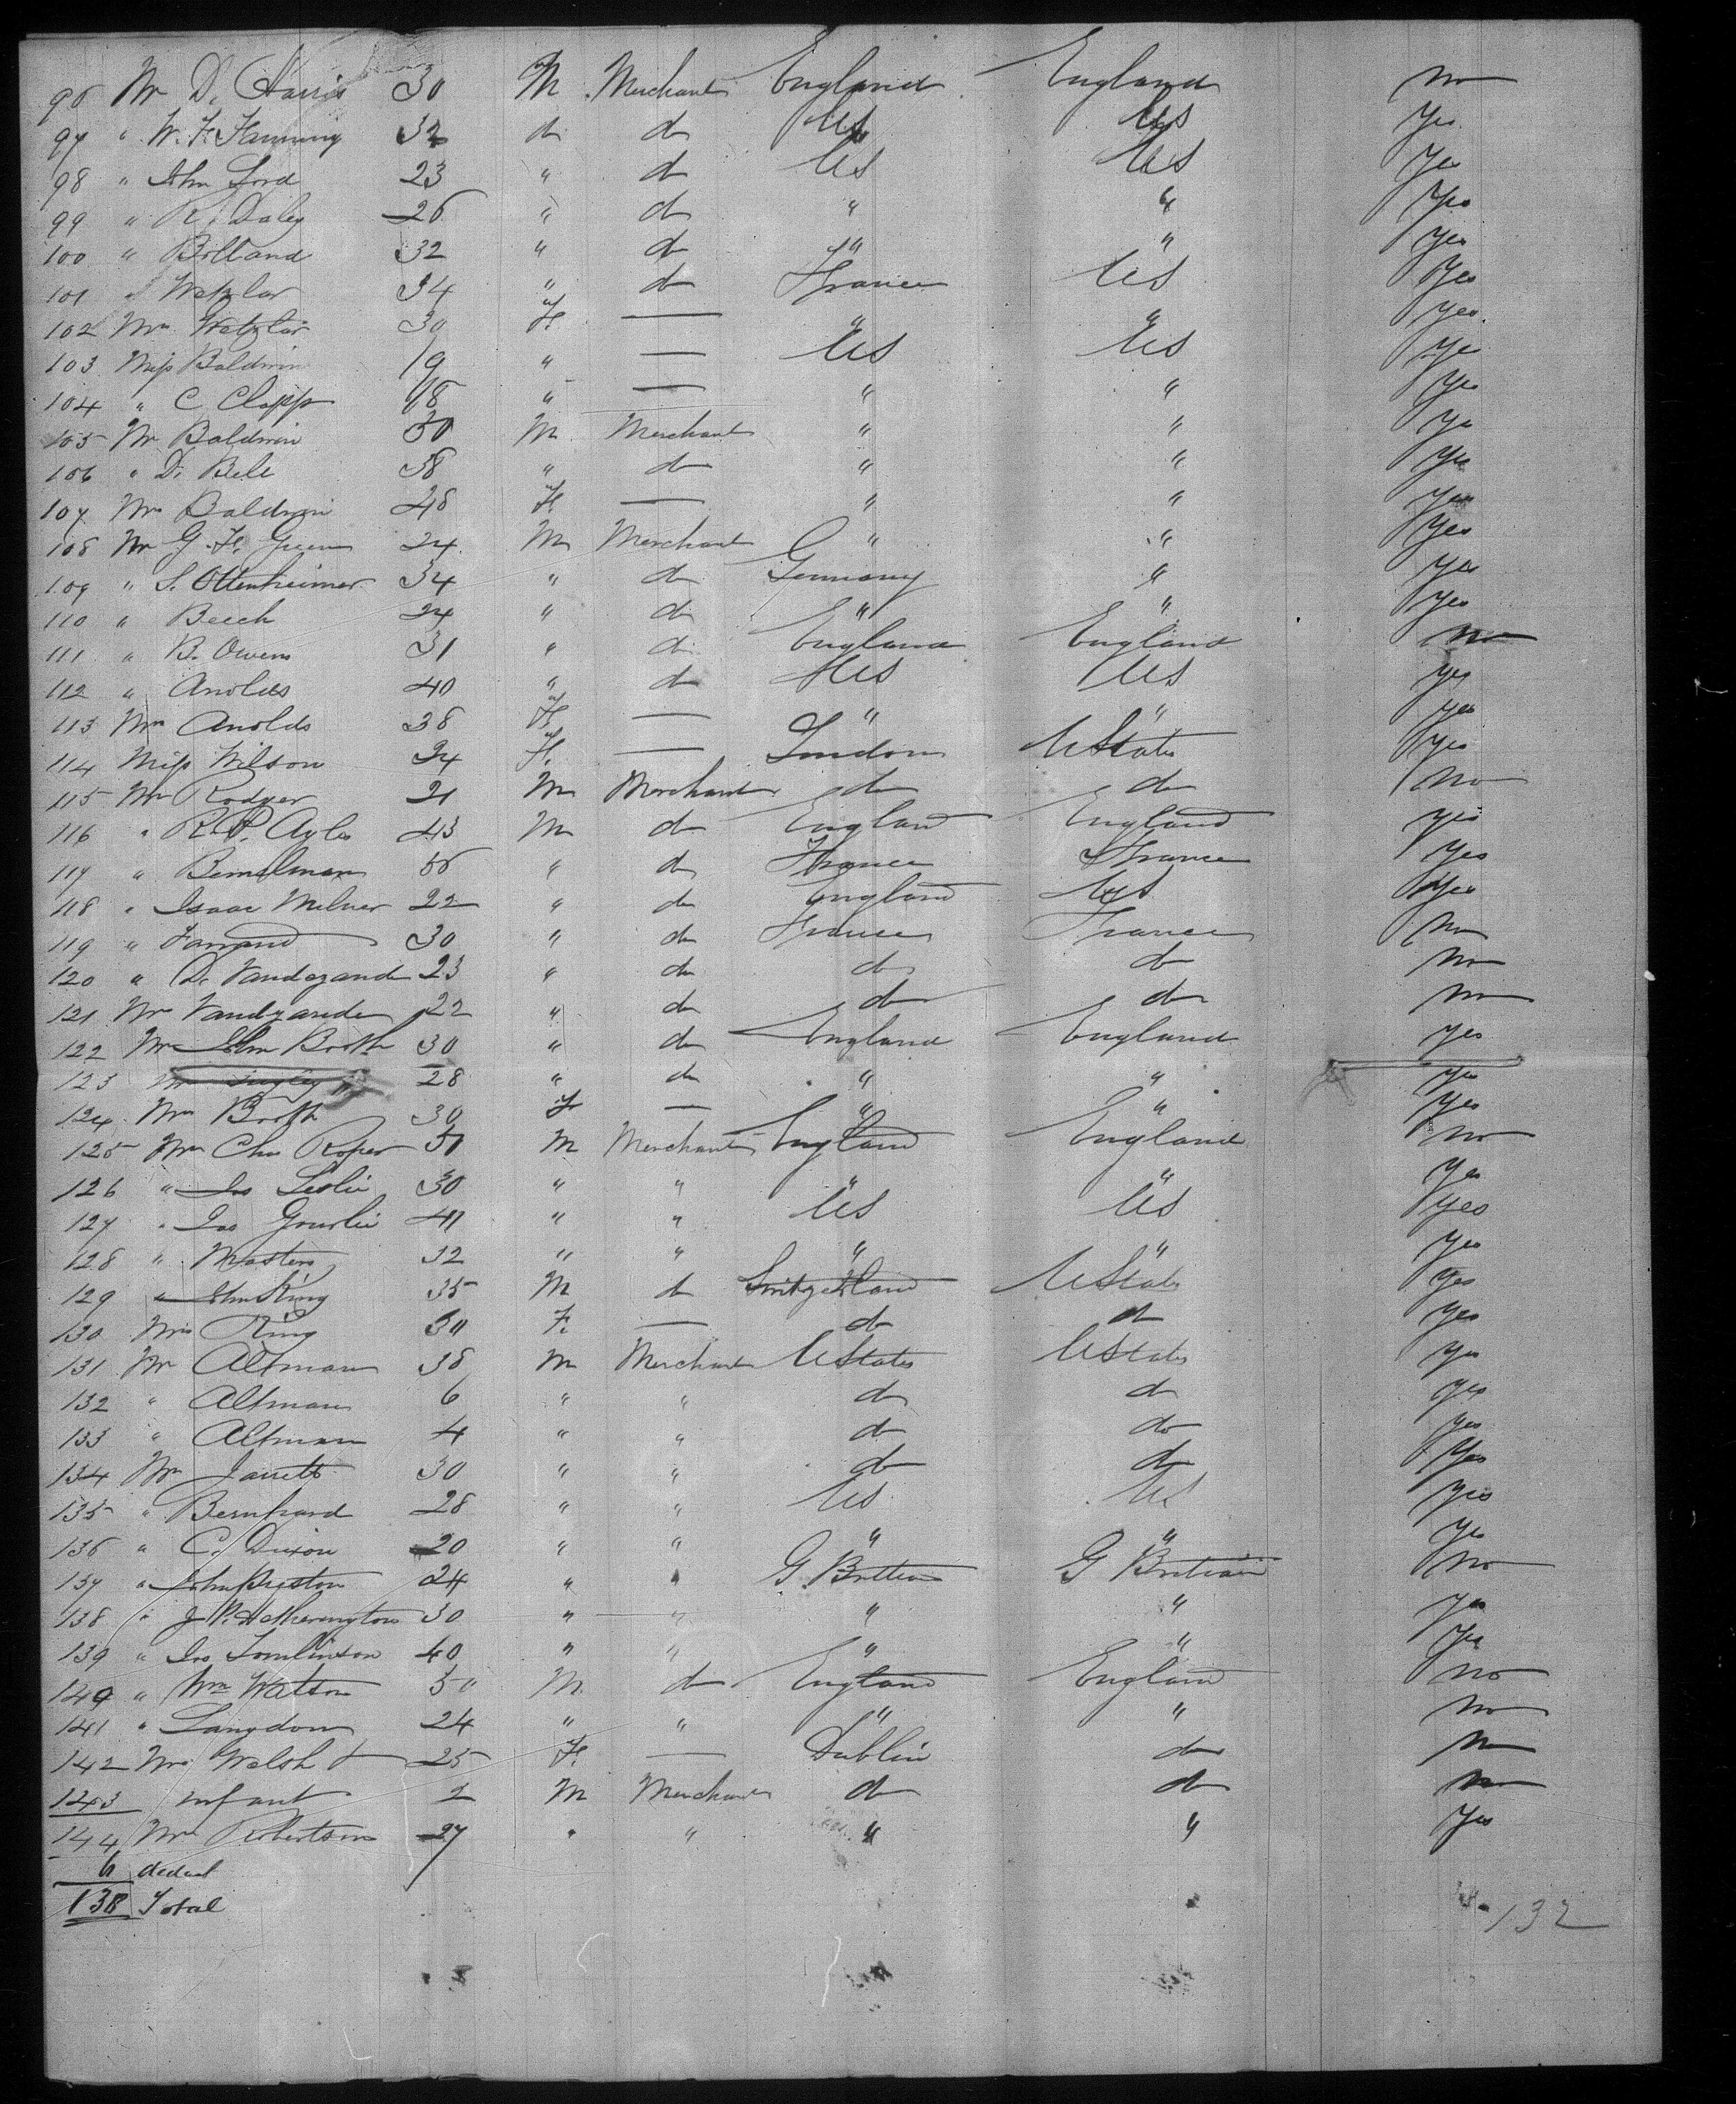 96 Mr D. Harris 30 M Merchant England England no
97 " W. F. Fanning 32 d d US US Yes
98 " John Lord 23 " d US US Yes
99 " R. Daley 26 " d " " Yes
100 " Bolland 32 " d " " Yes
101 " Wetzlar 34 " d France US Yes
102 Mrs Wetzlar 30 F. — " " Yes
103 Miss Baldwin 19 " — US US Yes
104 " C Clapp 18 " — " " Yes
105 Mr Baldwin 30 M Merchant " " Yes
106 " D. Bell 38 " d " " Yes
107 Mrs Baldwin 28 F. — " " Yes
108 Mr G. F. Green 24 M Merchant " " Yes
109 " S. Ottenheimer 34 " d Germany " Yes
110 " Beech 24 " d " " Yes
111 " B. Owens 31 " d England England no
112 " Anolds 40 " d US US yes
113 Mrs Anolds 38 F. — " " yes
114 Miss Wilson 24 F. — London UStates yes
115 Mr Rodger 21 M Merchant do do no
116 " R. P. Ayles 43 M d England England yes
117 " Bemelman 56 " d France France Yes
118 " Isaac Milner 22 " do England US Yes
119 " Farrand 30 " do France France no
120 " D. Vandezande 23 " do do do no
121 Mr Vandyande 22 " do do do no
122 Mr John Booth 30 " do England England yes
123 Mr 28 " do " " yes
124 Mrs Booth 30 F — " " yes
125 Mr Chs Roper 51 M Merchant England England no
126 " Jas Leslie 30 " " " " Yes
127 " Jas Gourlie 41 " " US US Yes
128 " Masters 32 " " " " Yes
129 " John King 35 M d Switzerland UStates Yes
130 Mrs King 30 F. — do do Yes
131 Mr Altman 38 M Merchant UStates UStates Yes
132 " Altman 6 " " do do Yes
133 " Altman 4 " " do do Yes
134 Mr Jarrett 30 " " do do Yes
135 " Bernhard 28 " " US US Yes
136 " C. Dixon 20 " " " " Yes
137 " John Pigston 24 " " G. Brittain G Britain no
138 " J. P. Hetherington 30 " " " " Yes
139 " Jos Tomlinson 40 " " " " Yes
140 " Wm Watson 50 M. d England England no
141 " Langdon 24 " " " " no
142 Mrs Welsh & 25 F. — Dublin do no
143 infant 2 M Merchant do do no
144 Mr Robertson 27 " " " " Yes
6 deduct
138 Total
132